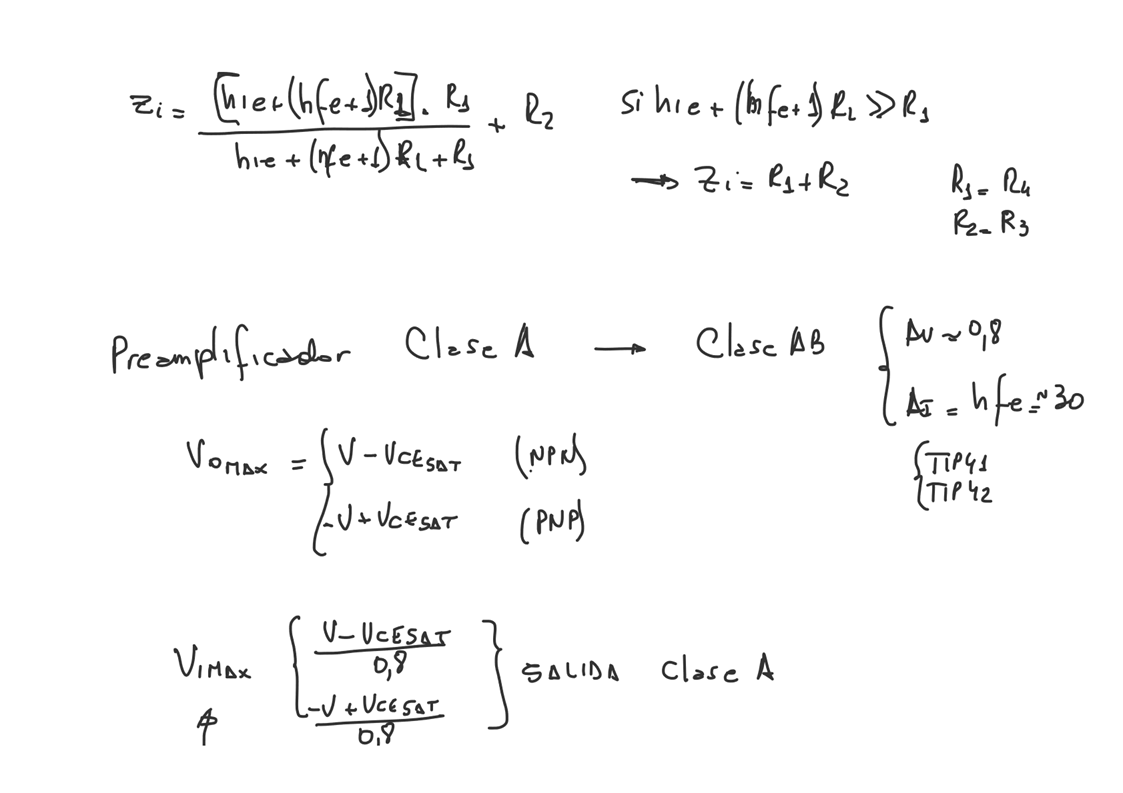 Zi = [hie+(hfe+1)RL]. R1 / hie + (hfe+1) RL + R1 + R2
Si hie + (hfe+1) RL >> R1
→ Zi = R1+R2
R1 = R4
R2 = R3
Preamplificador Clase A → Clase AB { AV ~ 0,8
AI = hfe = ~30
{ TIP41
TIP42
VOMAX = { V - VCESAT (NPN)
-V + VCESAT (PNP)
VIMAX { V - VCESAT / 0,8
-V + VCESAT / 0,8 } SALIDA Clase A
↑